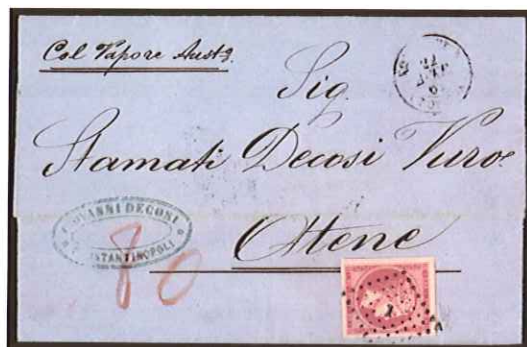 Col Vapore Austº.
Sig.
Stamati Decosi Vuro
GIOVANNI DECOSI
COSTANTINOPOLI
80
Atene
1